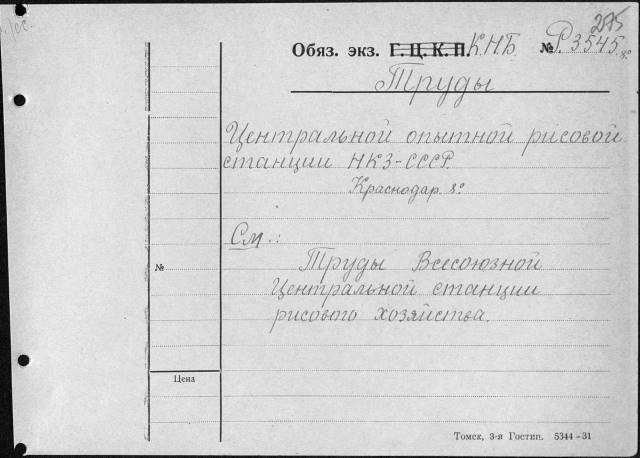 275
Обяз. экз. Г.Ц.К.П. К.Н.Б. № Р.3545. 8º
Труды
Центральной опытной рисовой
станции НКЗ-СССР.
Краснодар. 8º
См.:
Труды Всесоюзной
№
Центральной станции
рисового хозяйства.
Цена
Томск, 3-я Гостип. 5344–31